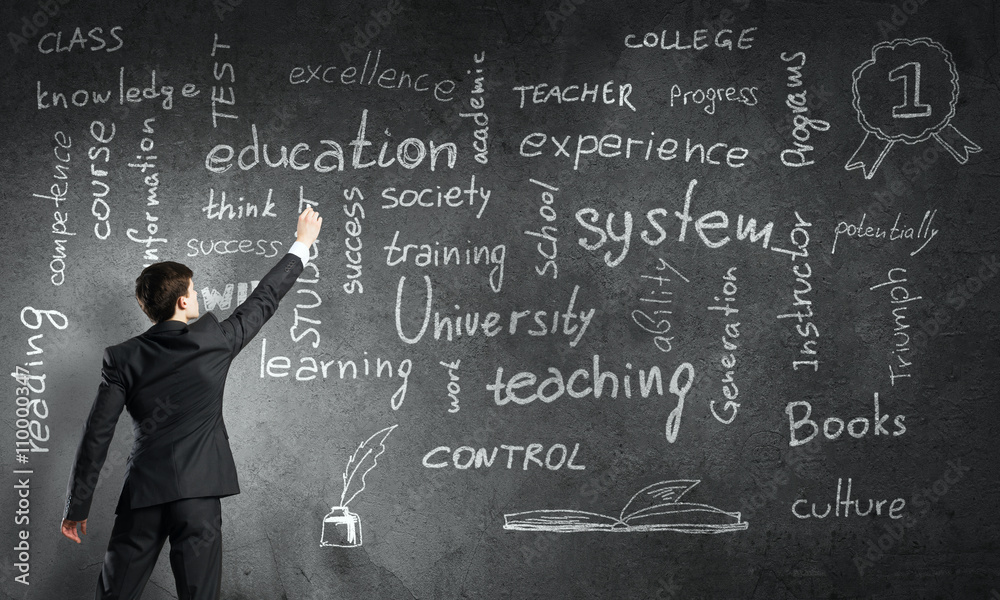 CLASS
COLLEGE
excellence
TEST
academic
knowledge
TEACHER
Progress
Programs
1
competence
course
information
education
experience
think
society
STUDENT
success
school
system
potentially
success
training
ability
Instructor
WIN
University
Generation
Triumph
reading
learning
work
teaching
Books
CONTROL
culture
Adobe Stock | #110000347